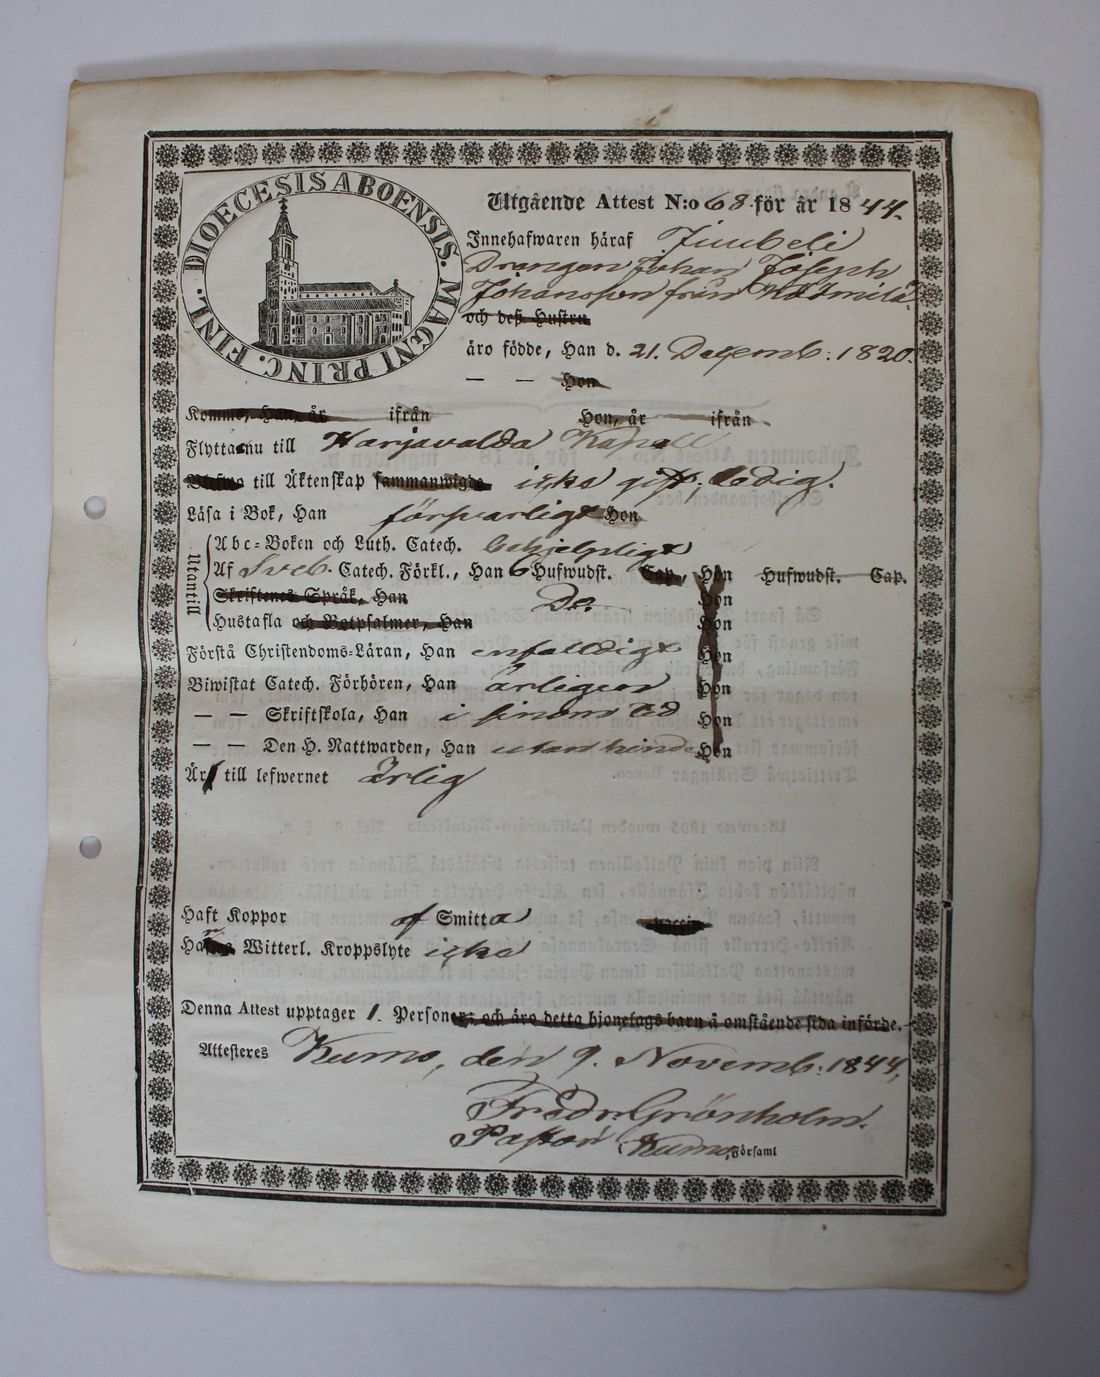 DIOECESIS ABOENSIS. MAGNI PRINC. FINL.
Utgående Attest N:o 68 för år 1844.
Innehafwaren häraf
Drengen Johan Joseph
Johansson från
och deß Hustru
äro födde, Han d. 21. Decemb: 1820.
— — Hon
Komme, Han, år ifrån Hon, år ifrån
Flytta nu till Harjavalda Kapell
till Äktenskap sammanwigde icke gift, ledig.
Läsa i Bok, Han försvarligt Hon
Utantill
Abc-Boken och Luth. Catech. behjelpligt
Af Sveb. Catech. Förkl., Han 6 Hufwudst. Cap., Hon Hufwudst. Cap.
Skriftenes Språk, Han Do. Hon
Hustafla och Botpsalmer, Han Hon
Förstå Christendoms-Läran, Han enfalldigt Hon
Biwistat Catech. Förhören, Han årligen Hon
— — Skriftskola, Han i sinom tid Hon
— — Den H. Nattwarden, Han utan hinder Hon
Är till lefwernet Ärlig
Haft Koppor af Smitta vaccin
Witterl. Kroppslyte icke
Denna Attest upptager 1. Personer; och äro detta hjonelags barn å omstående sida införde.
Attesteres Kumo, den 9. Novemb: 1844,
Fredr Grönholm.
Pastor i Kumo Församl